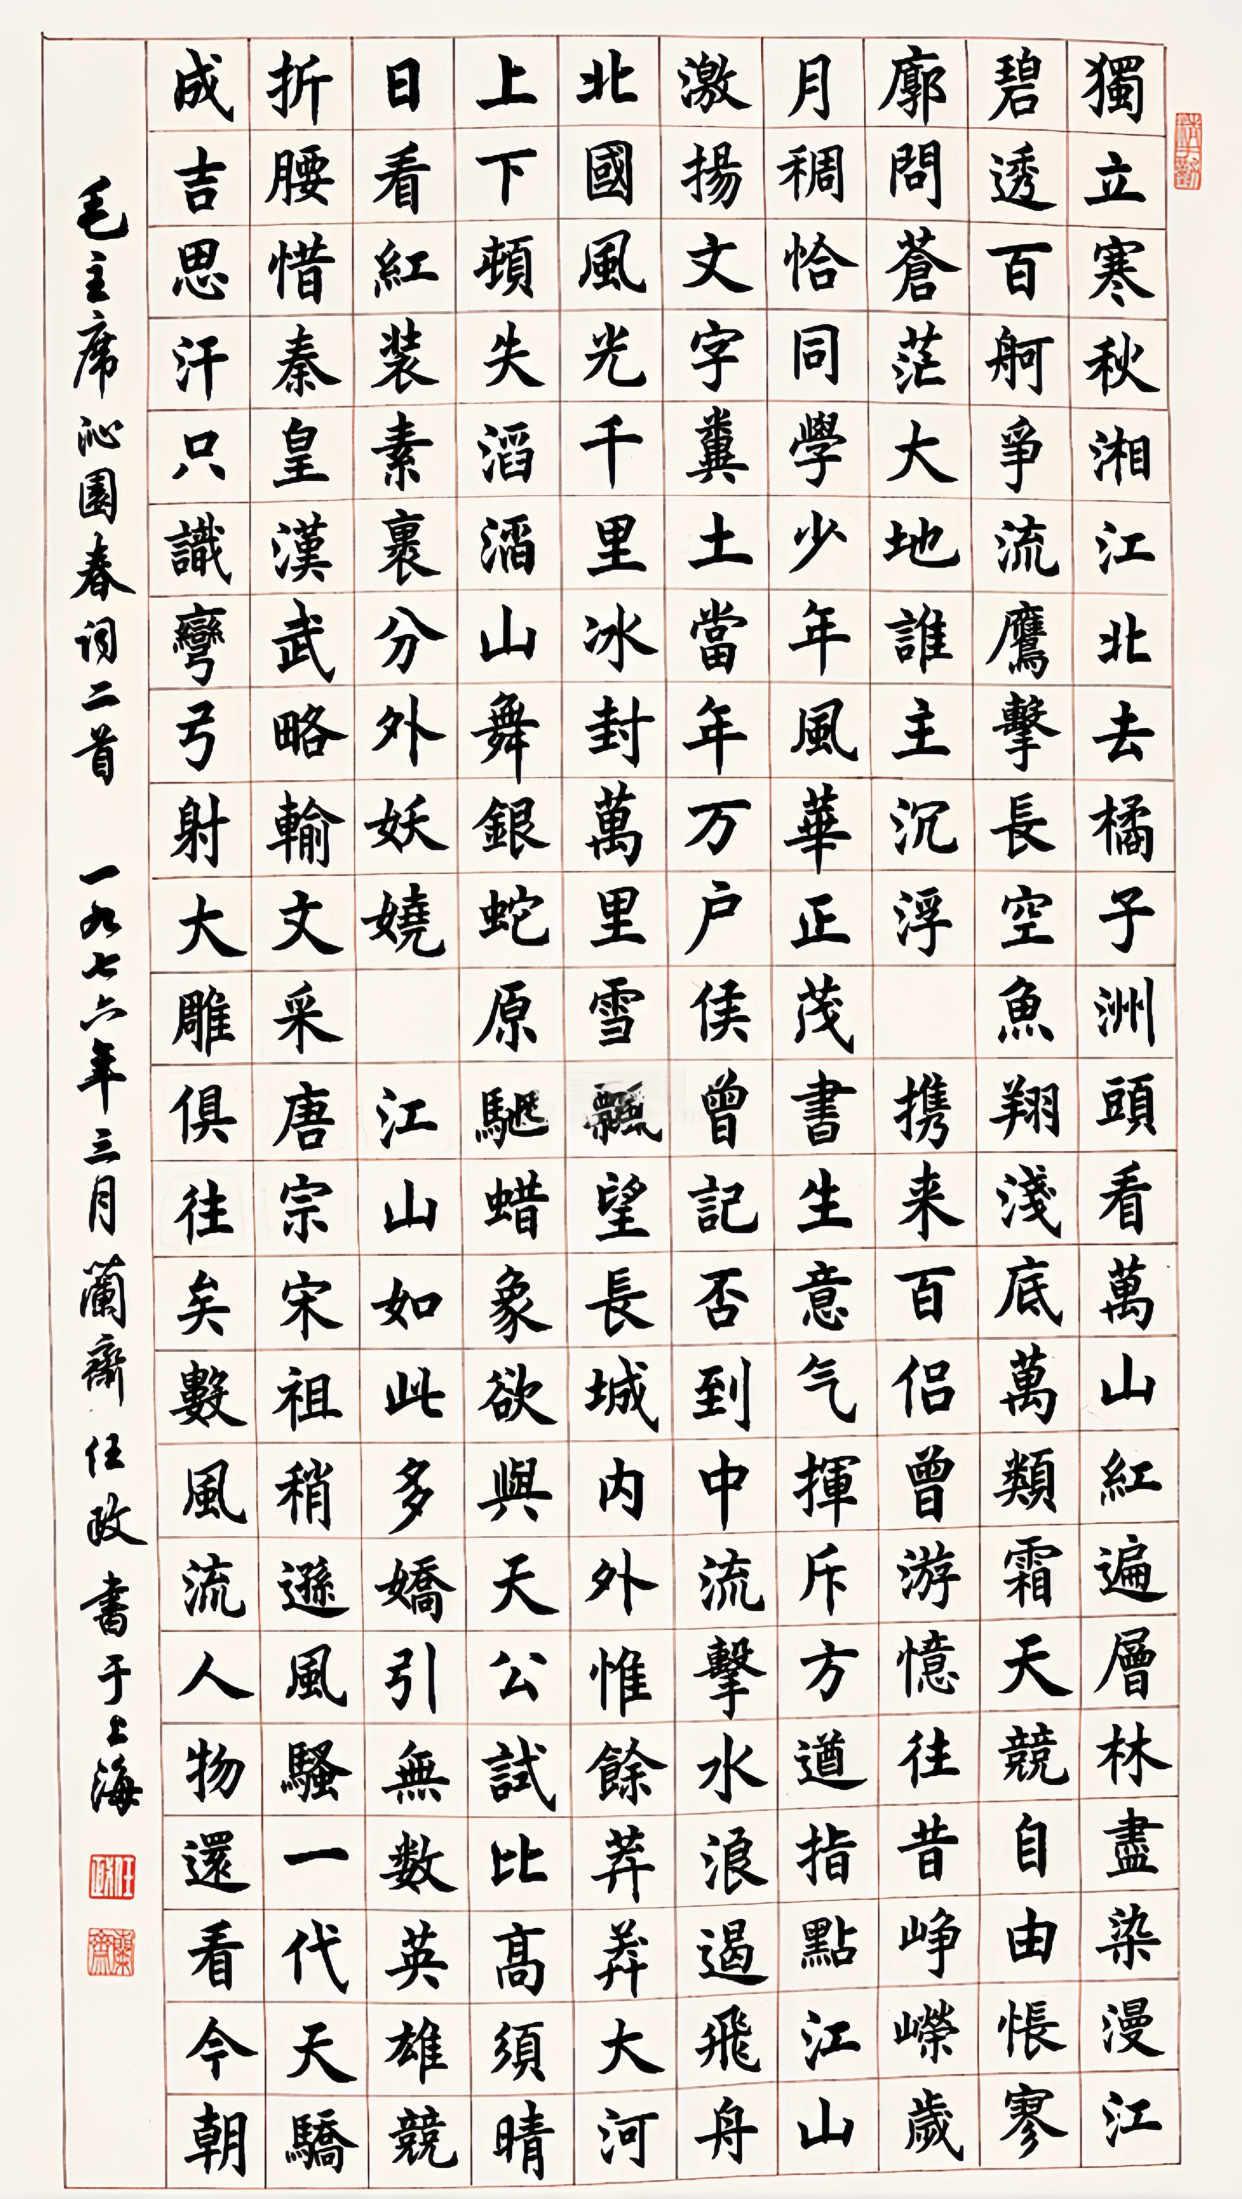 獨立寒秋湘江北去橘子洲頭看萬山紅遍層林盡染漫江
碧透百舸爭流鷹擊長空魚翔淺底萬類霜天競自由悵寥
廓問蒼茫大地誰主沉浮 携来百侣曾游憶往昔崢嶸歲
月稠恰同學少年風華正茂書生意气揮斥方遒指點江山
激揚文字糞土當年万户侯曾記否到中流擊水浪遏飛舟
北國風光千里冰封萬里雪飄望長城内外惟餘莽莽大河
上下頓失滔滔山舞銀蛇原馳蜡象欲與天公試比高須晴
日看紅装素裹分外妖嬈 江山如此多嬌引無数英雄競
折腰惜秦皇漢武略輸文采唐宗宋祖稍遜風騷一代天驕
成吉思汗只識彎弓射大雕俱往矣數風流人物還看今朝
毛主席沁園春詞二首 一九七六年三月蘭齋任政書于上海
任政